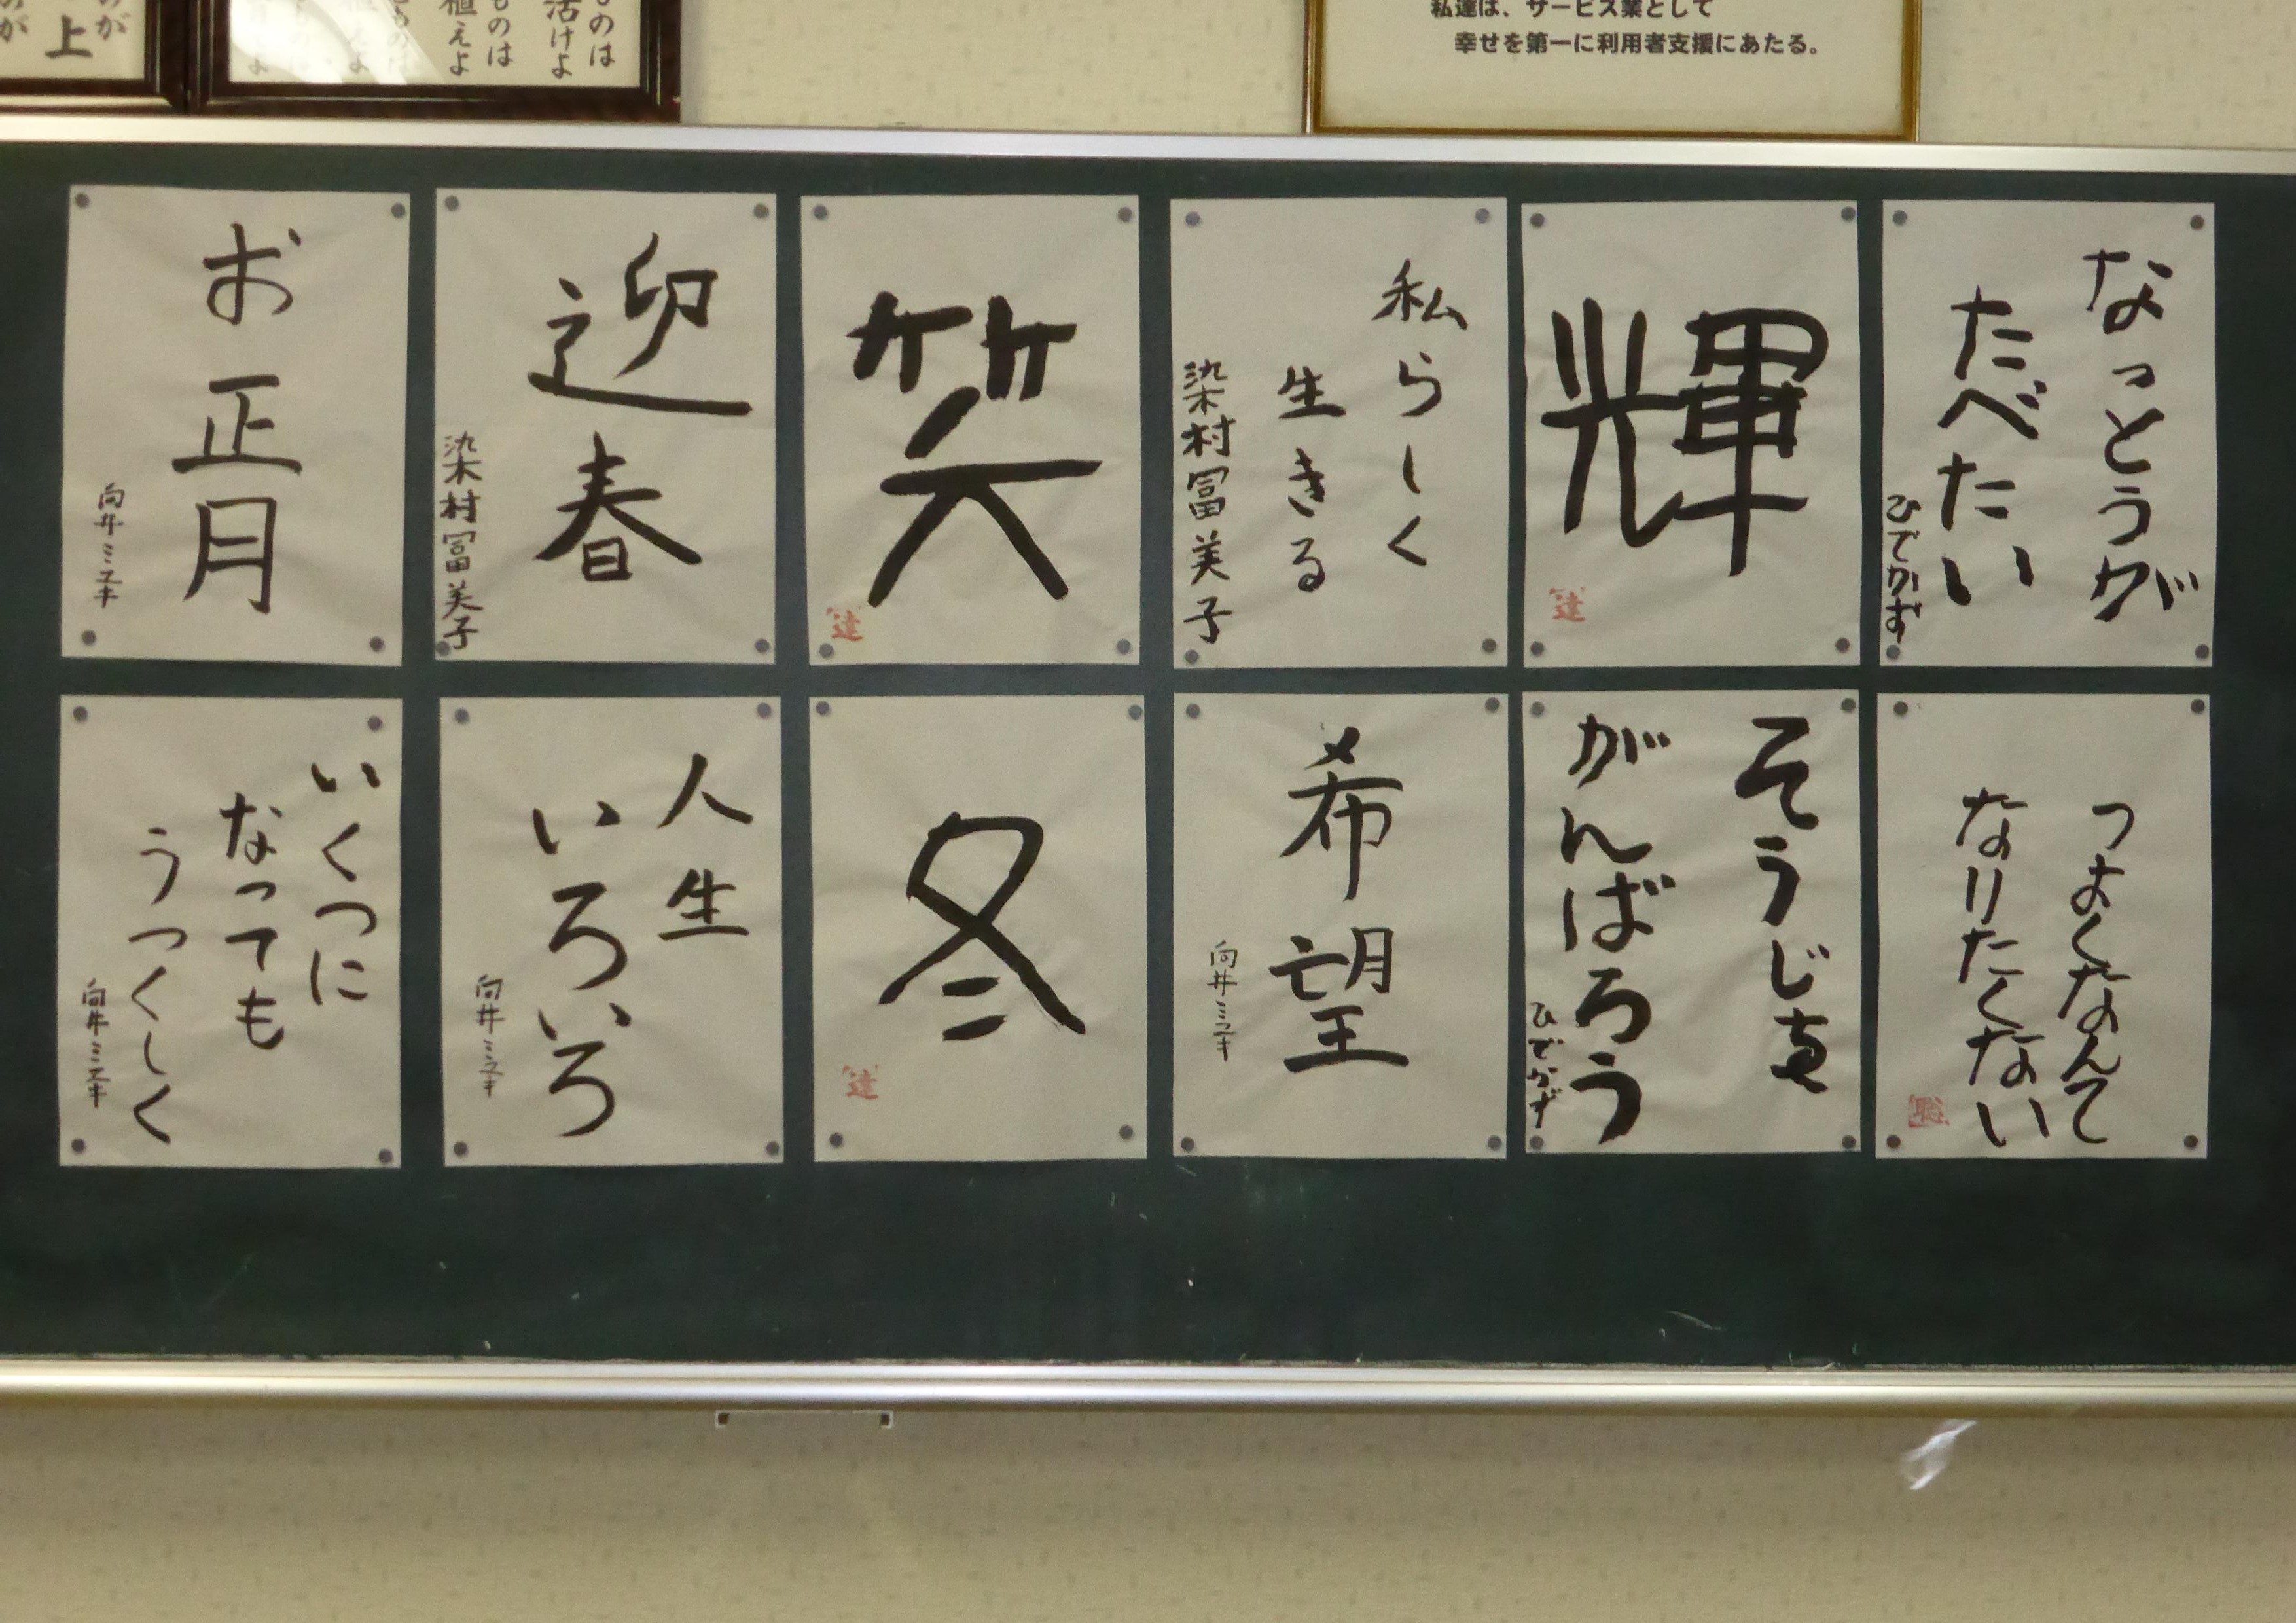 私達は、サービス業として
幸せを第一に利用者支援にあたる。
ものは
活けよ
ものは
植えよ
のが
上
のが
なっとうが
たべたい
ひでかず
輝
達
私らしく
生きる
染村冨美子
笑
達
迎
春
染村冨美子
お正月
向井ミユキ
つよくなんて
なりたくない
聡
そうじを
がんばろう
ひでかず
希望
向井ミユキ
冬
達
人生
いろいろ
向井ミユキ
いくつに
なっても
うつくしく
向井ミユキ